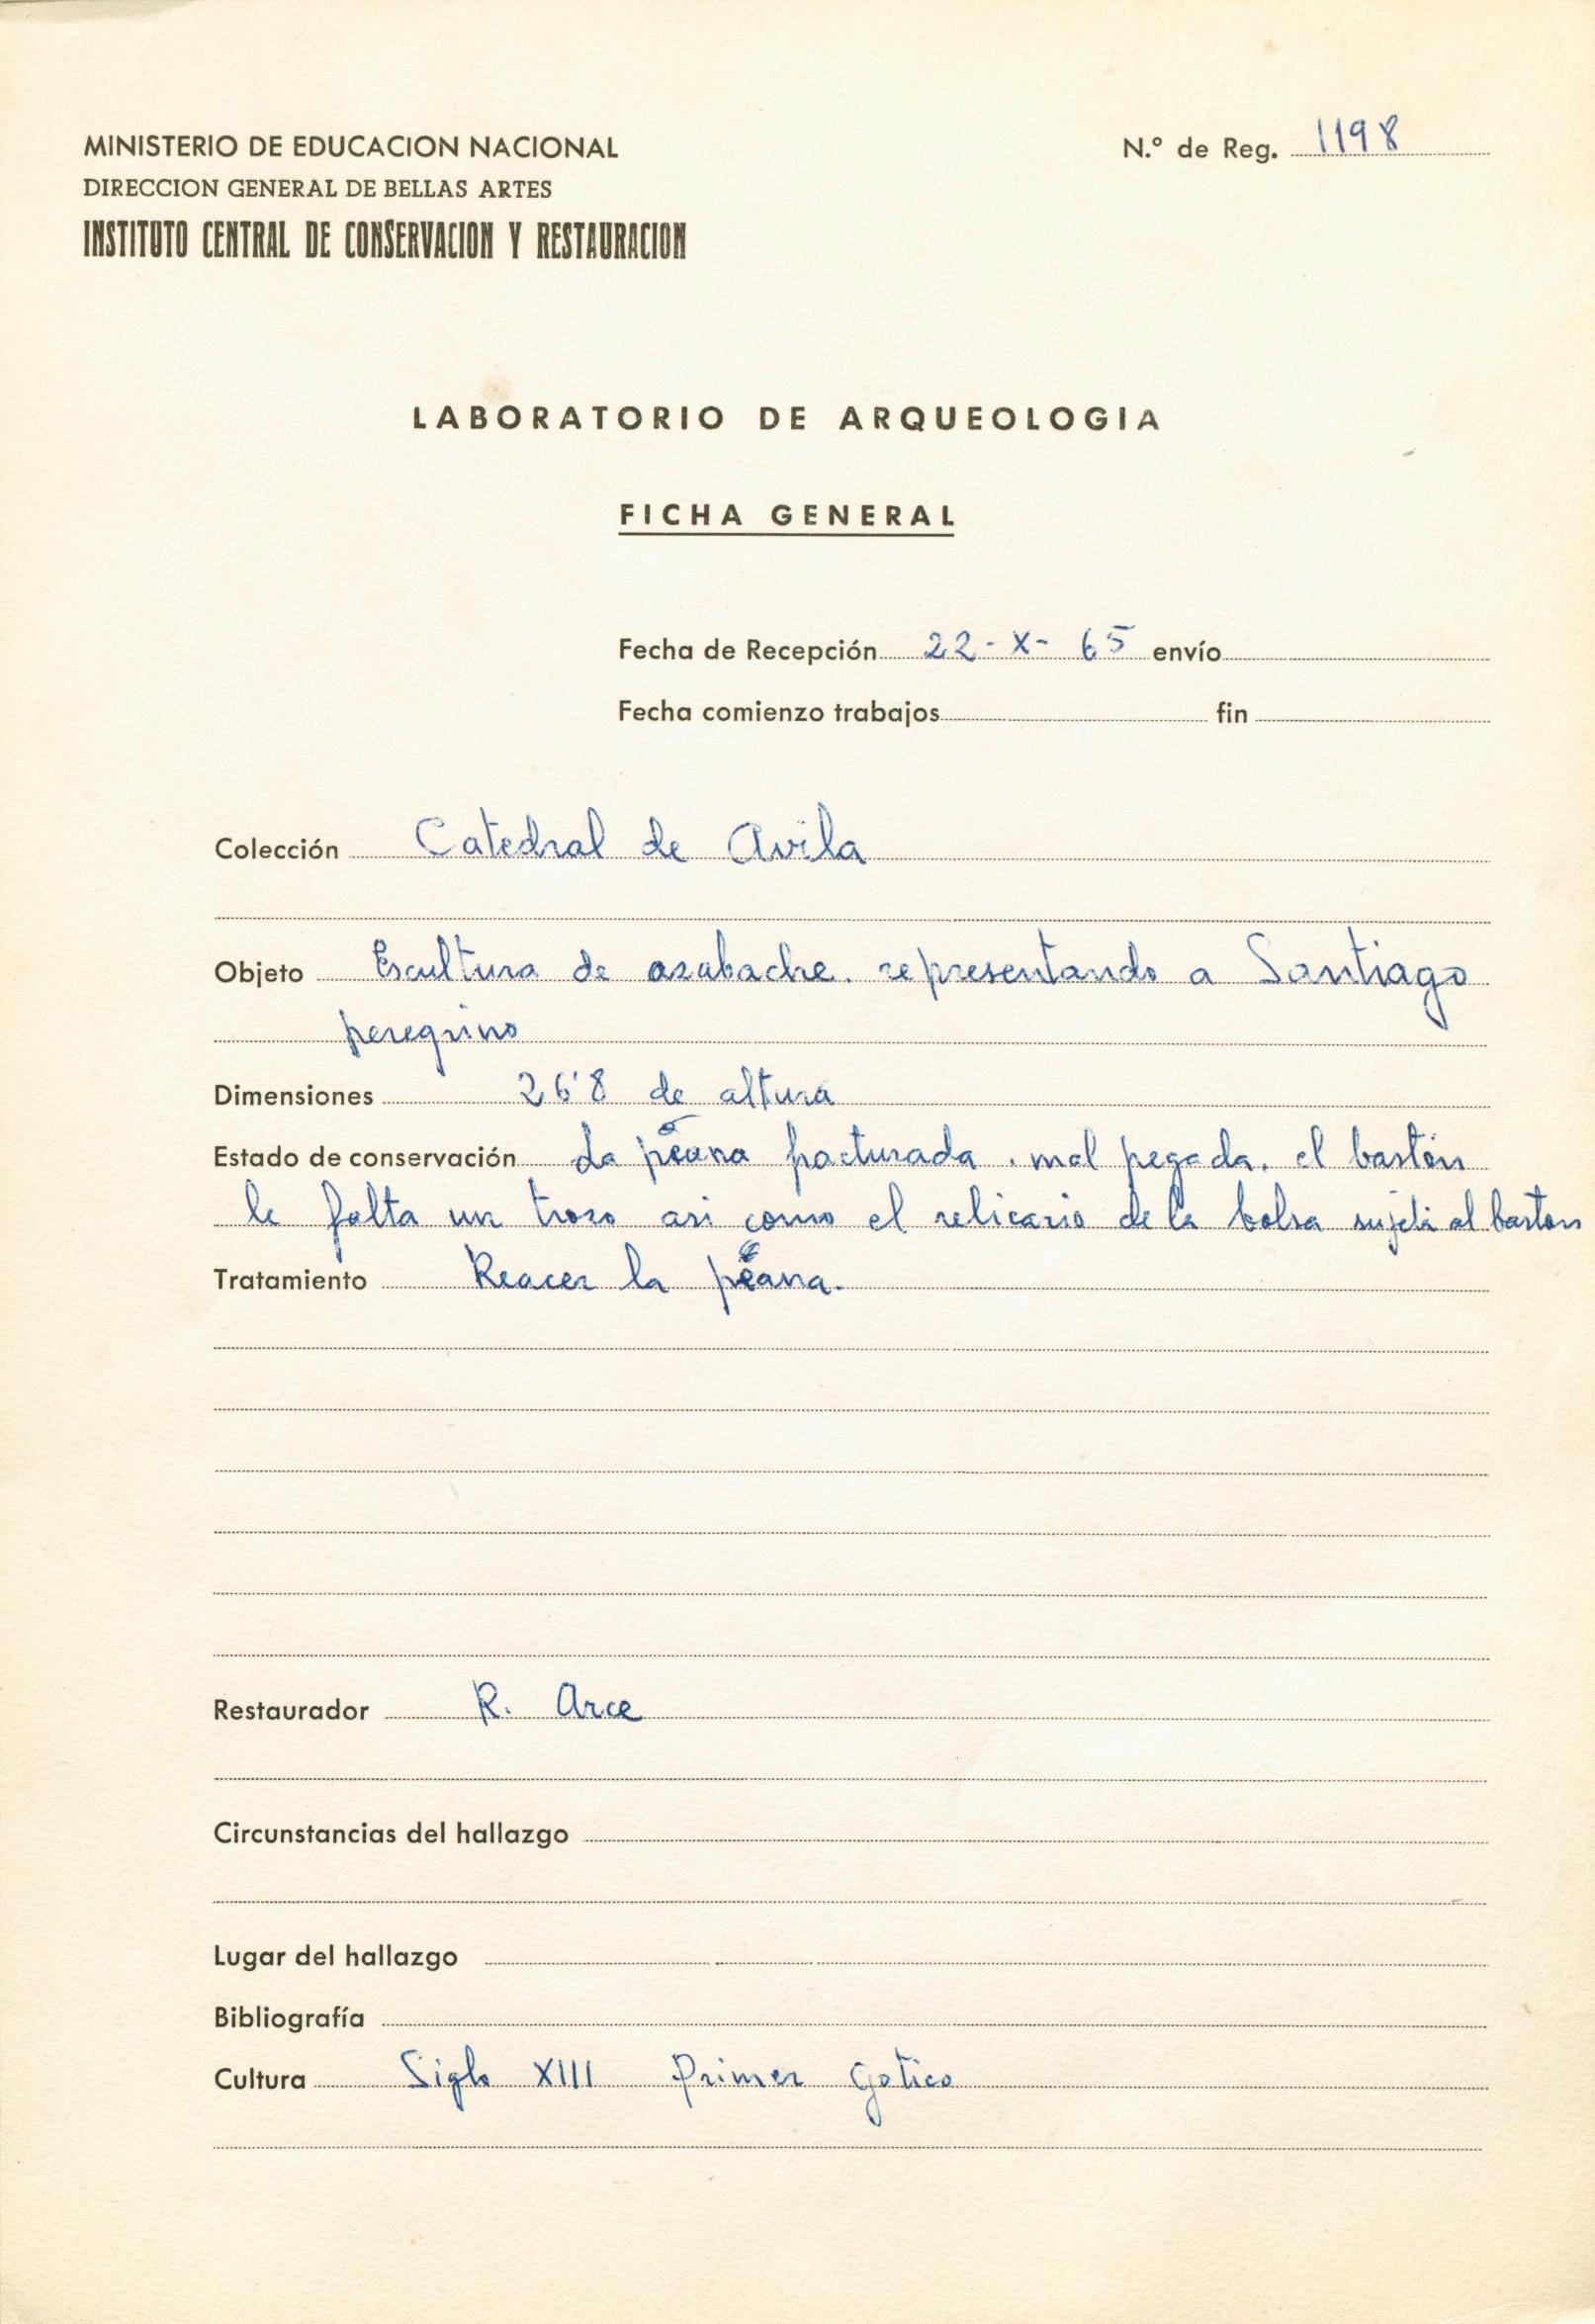 MINISTERIO DE EDUCACION NACIONAL
N.º de Reg. 1198
DIRECCION GENERAL DE BELLAS ARTES
INSTITUTO CENTRAL DE CONSERVACION Y RESTAURACION
LABORATORIO DE ARQUEOLOGIA
FICHA GENERAL
Fecha de Recepción 22-X-65 envío
Fecha comienzo trabajos fin
Colección Catedral de Avila
Objeto Escultura de azabache. representando a Santiago
peregrino
Dimensiones 26'8 de altura
Estado de conservación La peana fracturada . mal pegada. el bastón
le falta un trozo asi como el relicario de la bolsa sujeta al baston
Tratamiento Reacer la peana.
Restaurador R. Arce
Circunstancias del hallazgo
Lugar del hallazgo
Bibliografía
Cultura Siglo XIII Primer Gotico